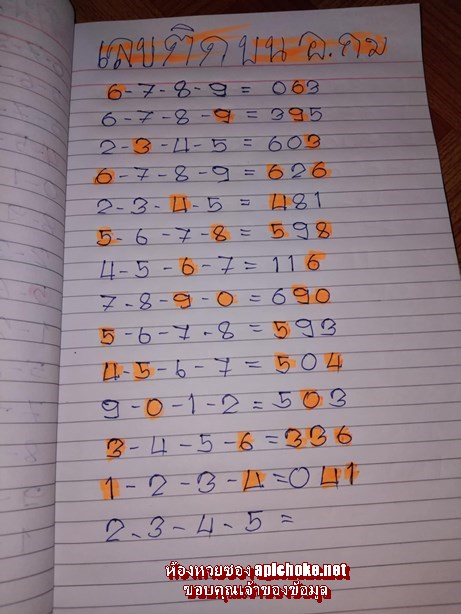 เลขติดบน อ.กม
6-7-8-9 = 063
6-7-8-9 = 395
2-3-4-5 = 603
6-7-8-9 = 626
2-3-4-5 = 481
5-6-7-8 = 598
4-5-6-7 = 116
7-8-9-0 = 690
5-6-7-8 = 593
4-5-6-7 = 504
9-0-1-2 = 503
3-4-5-6 = 336
1-2-3-4 = 041
2-3-4-5 =
ห้องหวยซอง apichoke.net
ขอบคุณเจ้าของข้อมูล